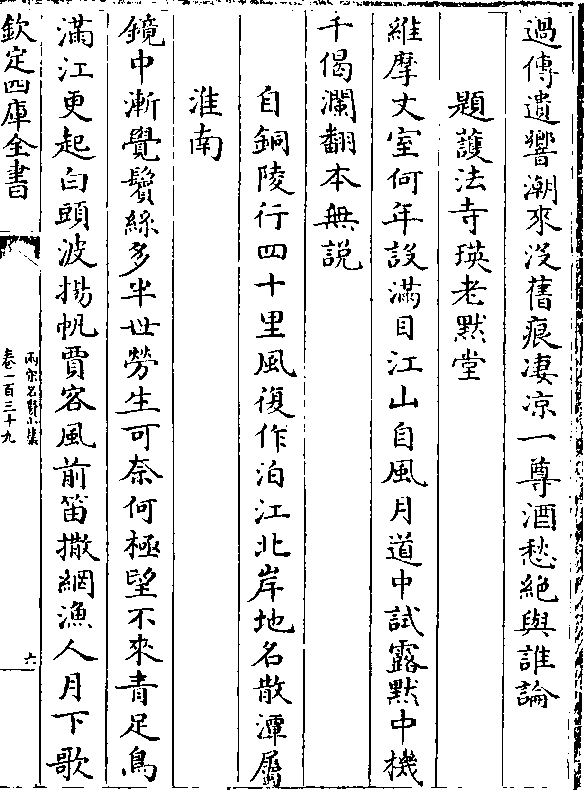 過傳遺響潮來没舊痕凄凉一尊酒愁絶與誰論
題䕶法寺瑛老黙堂
維摩丈室何年設滿目江山自風月道中試露黙中機
千偈瀾翻本無説
自銅陵行四十里風復作泊江北岸地名散潭屬
淮南
鏡中漸覺鬢絲多半世勞生可奈何極望不來青足鳥
滿江更起白頭波揚帆賈客風前笛撒網漁人月下歌
欽定四庫全書
兩宋名賢小集
卷一百三十九
六